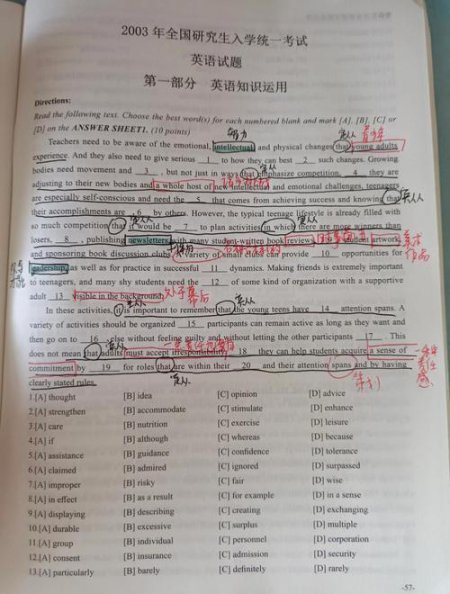 2003 年全国研究生入学统一考试
英语试题
第一部分 英语知识运用
Directions:
Read the following text. Choose the best word(s) for each numbered blank and mark [A]. [B]. [C] or
[D] on the ANSWER SHEET1. (10 points)
Teachers need to be aware of the emotional, intellectual and physical changes that young adults
experience. And they also need to give serious 1 to how they can best 2 such changes. Growing
bodies need movement and 3 , but not just in ways that emphasize competition. 4 they are
adjusting to their new bodies and a whole host of new and emotional challenges, teenagers
are especially self-conscious and need the 5 that comes from achieving success and knowing that
their accomplishments are 6 by others. However, the typical teenage lifestyle is already filled with
so much competition that it would be 7 to plan activities in which there are more winners than
losers, 8 , publishing newsletters with many student-written book reviews, student artwork,
and sponsoring book discussion clubs. A variety of small clubs can provide 10 opportunities for
leadership, as well as for practice in successful 11 dynamics. Making friends is extremely important
to teenagers, and many shy students need the 12 of some kind of organization with a supportive
adult 13 visible in the background.
In these activities, it is important to remember that the young teens have 14 attention spans. A
variety of activities should be organized 15 participants can remain active as long as they want and
then go on to 16 else without feeling guilty and without letting the other participants 17 . This
does not mean that adults must accept irresponsibility. 18 they can help students acquire a sense of
commitment by 19 for roles that are within their 20 and their attention spans and by having
clearly stated rules.
1.[A] thought [B] idea [C] opinion [D] advice
2.[A] strengthen [B] accommodate [C] stimulate [D] enhance
3.[A] care [B] nutrition [C] exercise [D] leisure
4.[A] if [B] although [C] whereas [D] because
5.[A] assistance [B] guidance [C] confidence [D] tolerance
6.[A] claimed [B] admired [C] ignored [D] surpassed
7.[A] improper [B] risky [C] fair [D] wise
8.[A] in effect [B] as a result [C] for example [D] in a sense
9.[A] displaying [B] describing [C] creating [D] exchanging
10.[A] durable [B] excessive [C] surplus [D] multiple
11.[A] group [B] individual [C] personnel [D] corporation
12.[A] consent [B] insurance [C] admission [D] security
13.[A] particularly [B] barely [C] definitely [D] rarely
-57-